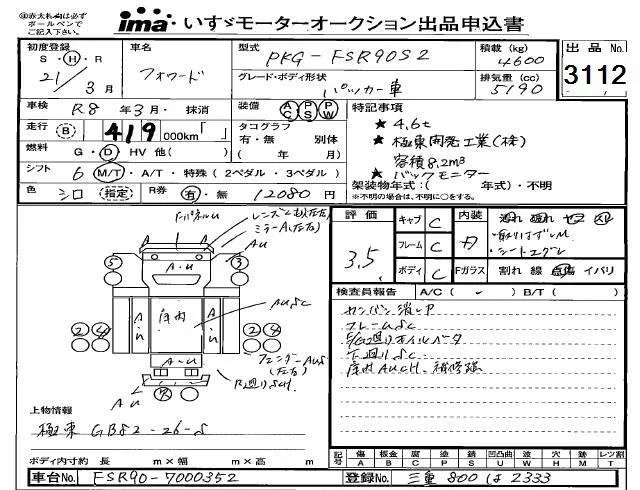 ㊟赤太わくは必ず
ボールペンで
ご記入下さい。
ima いすゞモーターオークション出品申込書
初度登録 車名 型式 PKG-FSR90S2 積載(kg) 4600 出品No. 3112
S・H・R 21/3月 フォワード グレード・ボディ形状 パッカー車 排気量(cc) 5190
車検 R8年3月・抹消 装備 AC PS PW 特記事項
走行 B 419 000km「 」 タコグラフ 有・無 別体 ( 年 月) ★ 4.6t
燃料 G・D・HV 他( ) ★ 極東開発工業(株)
容積8.2m³
シフト 6 M/T・A/T・特殊(2ペダル・3ペダル) ★ バックモニター
色 シロ(指定) R券 有・無 12080円 架装物年式:( 年式)・不明
※不明の場合は、不明に○をする。
評価 3.5 キャブ C 内装
フレーム C
・シートスグレ
ボディ C Fガラス 割れ 線 点傷 イバリ
レンズ
ミラーA(左右)
AU
A・U
床内
AUSC
フェンダーAUS
(左右)
検査員報告 A/C( ) B/T( )
カンバン消しP
フレームSC
下廻りSC
床内AUCH、補修跡
上物情報
極東 GB82-26-S
ボディ内寸約 長 m×幅 m×高 m
記号 傷A 板金B 腐C 塗P 錆S 凹凸曲U 波W 穴H 跡M レンズ割T
車台No. FSR90-7000352 登録No. 三重 800 は 2333